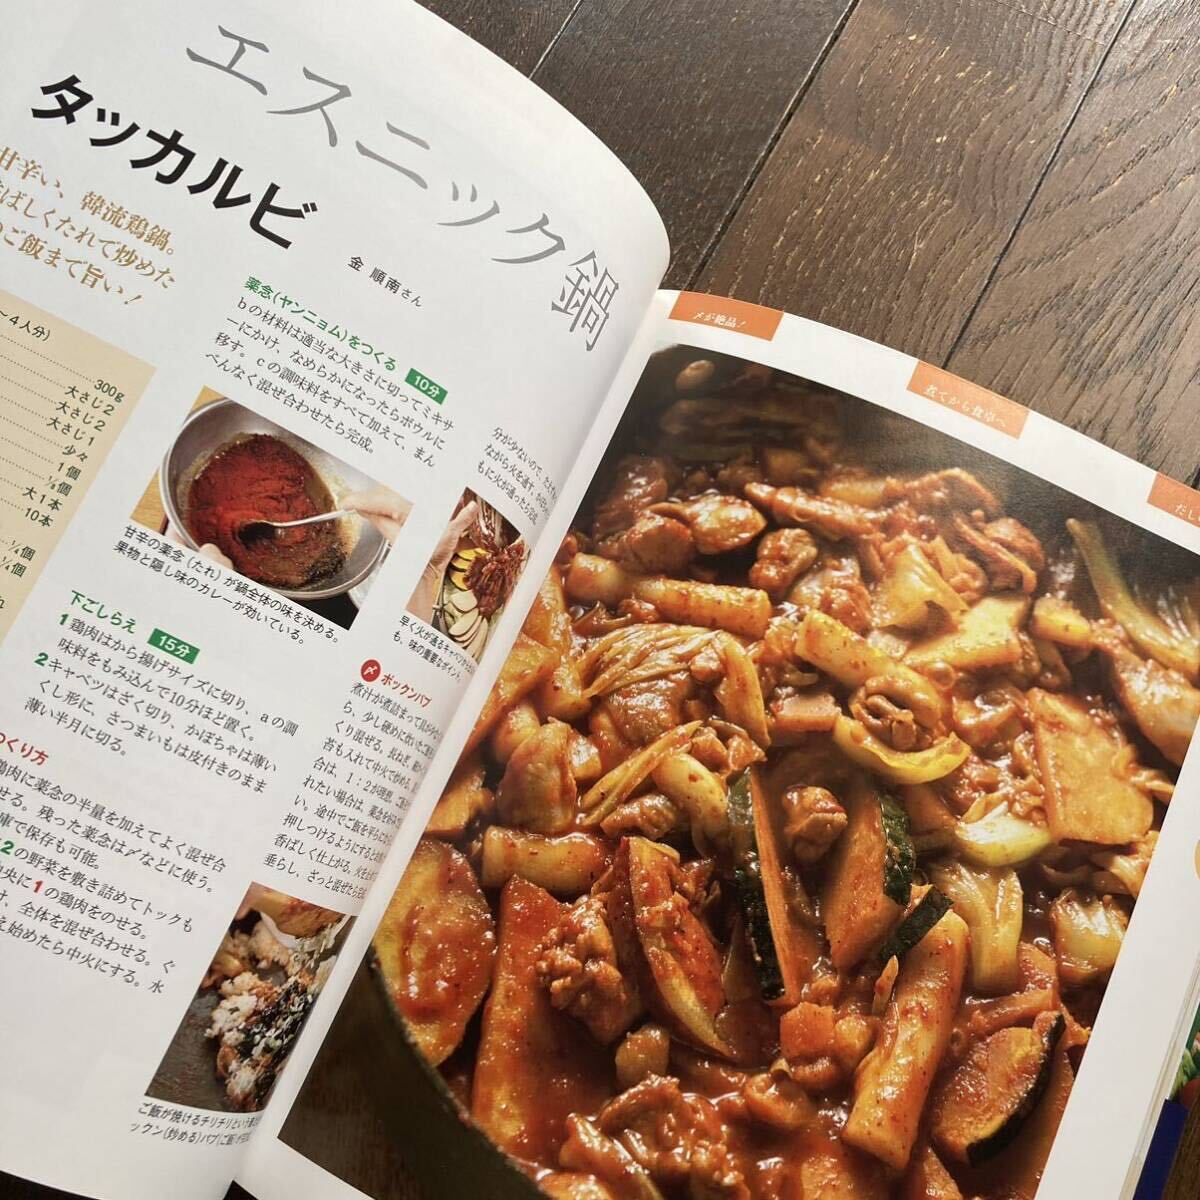 エスニック鍋
タッカルビ
甘辛い、韓流鶏鍋。
ばしくたれて炒めた
ご飯まで旨い！
金 順南さん
4人分）
300g
大さじ2
大さじ2
大さじ1
少々
1個
大1本
10本
薬念（ヤンニョム）をつくる 10分
bの材料は適当な大きさに切ってミキサ
ーにかけ、なめらかになったらボウルに
移す。cの調味料をすべて加えて、まん
べんなく混ぜ合わせたら完成。
甘辛の薬念（たれ）が鍋全体の味を決める。
果物と隠し味のカレーが効いている。
下ごしらえ 15分
1 鶏肉はから揚げサイズに切り、aの調
味料をもみ込んで10分ほど置く。
2 キャベツはざく切り、かぼちゃは薄い
くし形に、さつまいもは皮付きのまま
薄い半月に切る。
つくり方
鶏肉に薬念の半量を加えてよく混ぜ合
せる。残った薬念は〆などに使う。
庫で保存も可能。
2の野菜を敷き詰めてトックも
央に1の鶏肉をのせる。
け、全体を混ぜ合わせる。ぐ
え始めたら中火にする。水
分が少ないので、
ながら火を通す。
もに火が通ったら完成。
早く火が通るキャベツから
も、味の重要なポイント。
〆 ポックンパプ
煮汁が煮詰まって
ら、少し硬めに炊いたご飯
くり混ぜる。長ねぎ、
苔も入れて中火で炒める。
合は、1：2が理想。ご飯
れたい場合は、薬念を
い。途中でご飯を平らにか
押しつけるようにすると
香ばしく仕上がる。火を
垂らし、さっと混ぜたら完
ご飯が焼けるチリチリという
ックン（炒める）パプ（ご飯）
〆が絶品！
煮てから食卓へ
だし